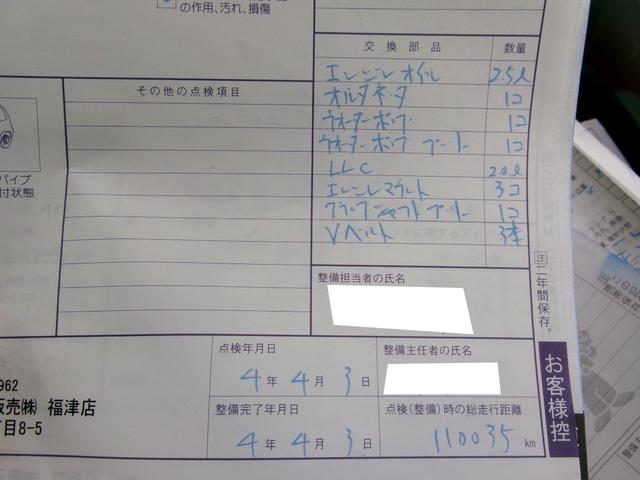 の作用、汚れ、損傷
交換部品 数量
エンジンオイル 2.5ℓ
オルタネータ 1コ
ウオーターポンプ 1コ
ウオーターポンプ プーリー 1コ
LLC 2.0ℓ
エンジンマウント 3コ
クランクシャフト プーリー 1コ
Vベルト 3本
その他の点検項目
パイプ
付状態
整備担当者の氏名
注 二年間保存。
点検年月日
4年 4月 3日
整備主任者の氏名
962
販売㈱ 福津店
丁目8-5
整備完了年月日
4年 4月 3日
点検(整備)時の総走行距離
110035 km
お客様控